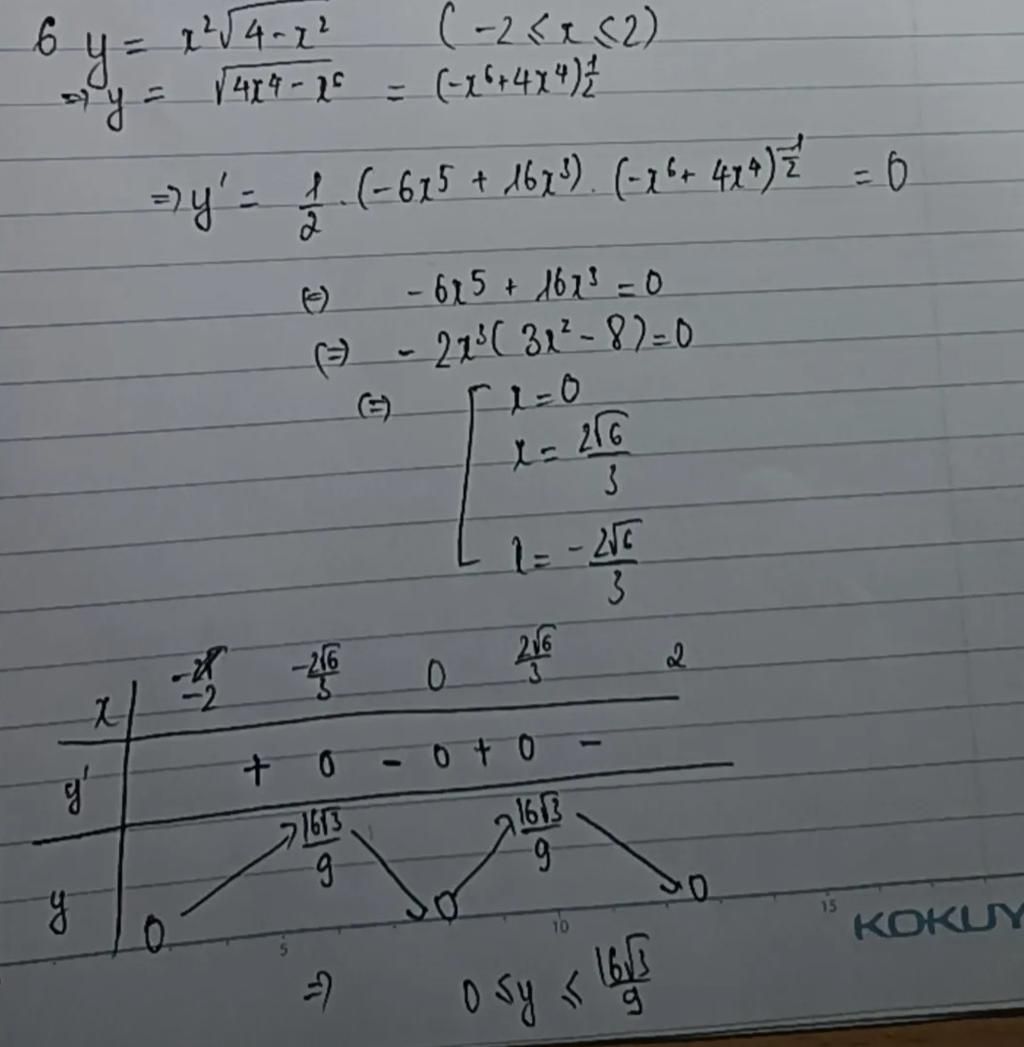 6 y = x²√(4-x²) (-2 ≤ x ≤ 2)
⇒ y = √(4x⁴ - x⁶) = (-x⁶+4x⁴)^(1/2)
⇒ y' = 1/2 . (-6x⁵ + 16x³) . (-x⁶ + 4x⁴)^(-1/2) = 0
(=) -6x⁵ + 16x³ = 0
(=) -2x³(3x² - 8) = 0
(=) [ x = 0
x = 2√6/3
x = -2√6/3
x | -2 -2√6/3 0 2√6/3 2
y' | + 0 - 0 + 0 -
y | 0 ↗ 16√3/9 ↘ 0 ↗ 16√3/9 ↘ 0
5 10 15 KOKUY
⇒ 0 ≤ y ≤ 16√3/9